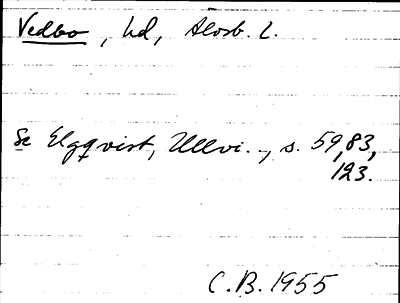 Vedbo, hd, Älvsb. l.
Se Elgqvist, Ullvi.., s. 59, 83,
123.
C.B. 1955